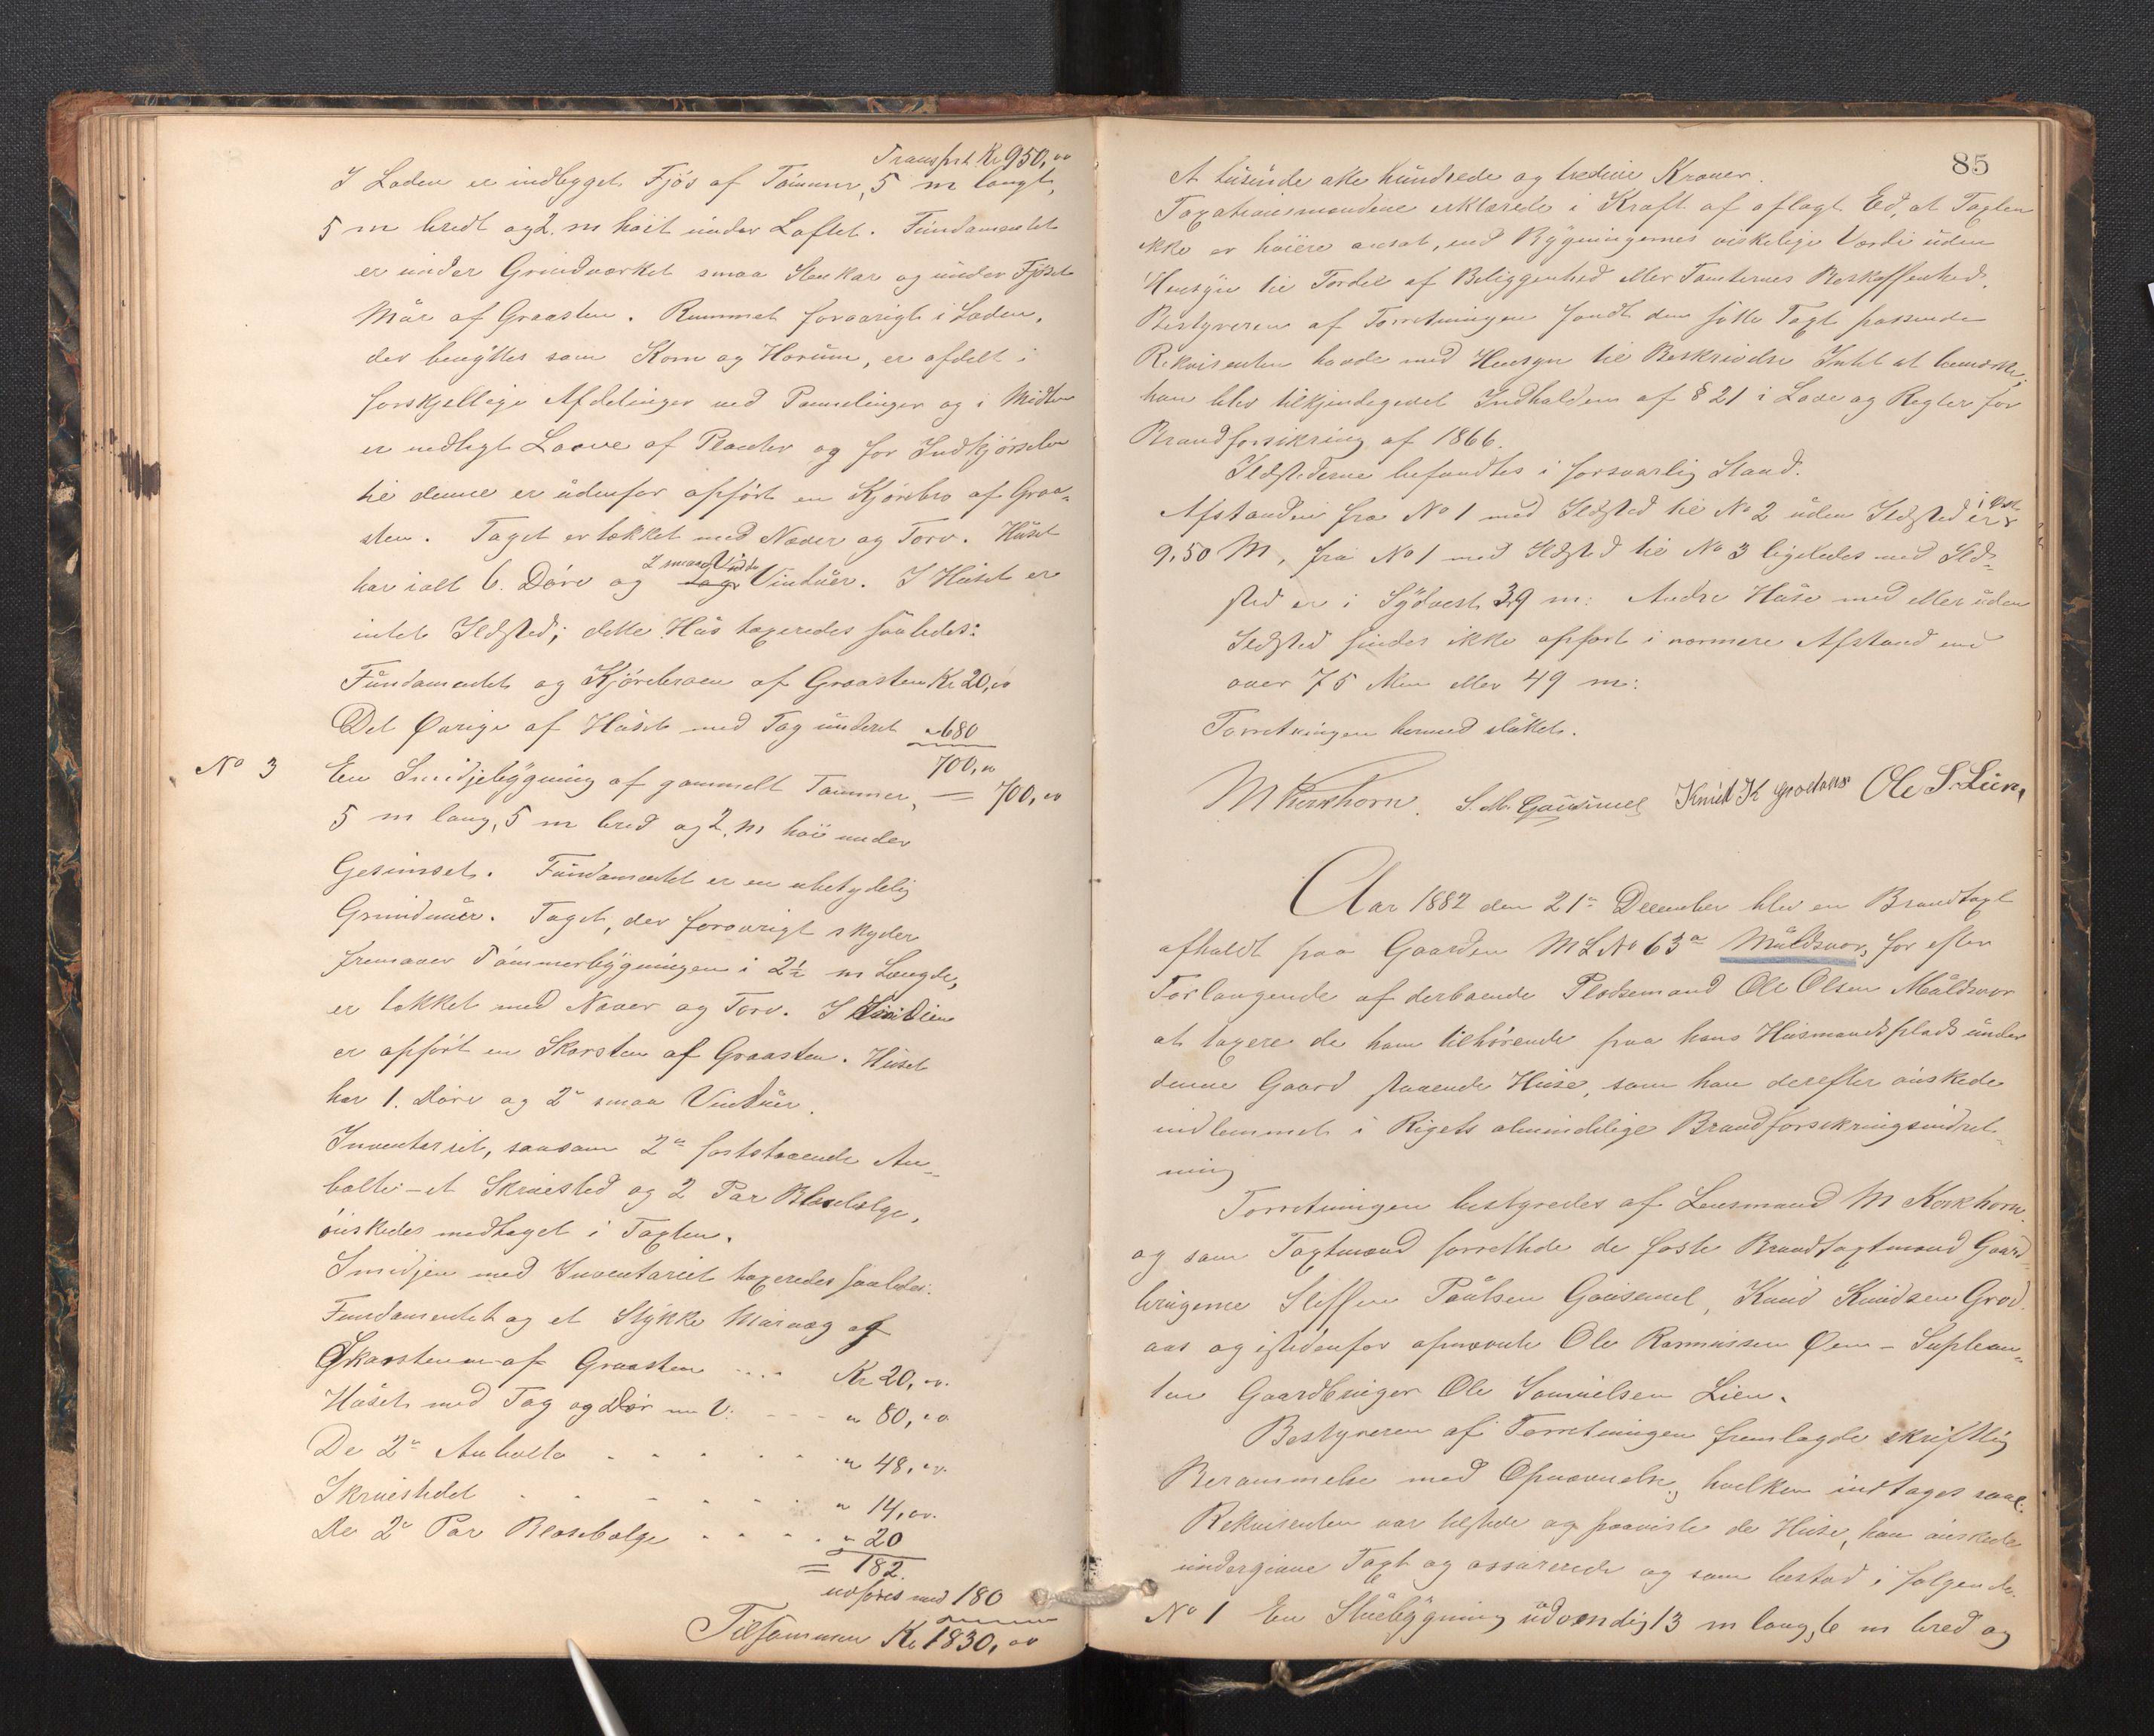 Transprt Kr 950,00
I Laden er indbygget Fjös af Tömmer, 5 m langt,
5 m bredt og 2. m höit under Loftet. Fundamentet
er under Grindverket smaa Stenkar og under Fjöset
Mur af Graasten. Rummet forøvrigt i Laden,
der benyttes som Korn og Horum, er afdelt i
forskjellige Afdelinger ved Pannelinger og i Midten
er nedlagt Laave af Planker og for Indkjörselen
til denne er udenfor opfört en Kjörebro af Graa-
sten. Taget er tækket med Næver og Torv. Huset
har ialt 6. Döre og 2 smaa Vinduer. I Huset er
intet Ildsted; dette Hus taxeredes saaledes:
Fundamentet og Kjörebroen af Graasten Kr 20,00
Det Øvrige af Huset med Tag underet " 680
700,00
= 700,00
No 3 En Smidjebygning af gammelt Tømmer,
5 m lang, 5 m bred og 2. m höi under
Gesimset. Fundamentet er en ubetydelig
Grundmur. Taget, der forøvrigt skyder
fremover Tömmerbygningen i 2½ m Længde,
er tækket med Næver og Torv. I Smidien
er opfört en Skorsten af Graasten. Huset
har 1. Dörr og 2de smaa Vinduer.
Inventariet, saasom 2de faststaaende An-
bolte - et Skruested og 2 Par Blæsebelge,
önskedes medtaget i Taxten.
Smidjen med Inventariet taxeredes saaledes:
Fundamentet og et Stykke Murvæg af
Skorstenen af Graasten .... Kr 20,00.
Huset med Tag og Dör m V. - - - " 80,00
De 2de Anbolte . . . . . " 48,00.
Skruestedet . . . . . . " 14,00.
De 2de Par Blæsebelge . . . . " 20
= 182.
udføres med 180
Tilsammen Kr 1830,00
85
Et tusinde otte hundrede og tredive Kroner.
Taxationsmændene erklærede i Kraft af aflagt Ed, at Taxten
ikke er høiere ansat, end Bygningernes virkelige Værdi uden
Hensyn til Fordel af Beliggenhed eller Tomternes Beskaffenhed.
Bestyreren af Forretningen fandt den satte Taxt passende
Rekvisenten havde med Hensyn til Beskrivelse Intet at bemærke,
han blev tilkjendegivet Indholdene af § 21 i Love og Regler for
Brandforsikring af 1866.
Ildstederne befandtes i forsvarlig Stand.
Afstanden fra No 1 med Ildsted til No 2 uden Ildsted er i Vest
9,50 M, fra No 1 med Ildsted til No 3 ligeledes med Ild-
sted er i Sydvest 39 m: Andre Huse med eller uden
Ildsted findes ikke opført i nærmere Afstand end
over 75 Alen eller 49 m:
Forretningen hermed sluttet.
M Korkhorn. S. M. Gausemel Knud K Grodaas Ole S. Lien,
Aar 1882 den 21de December blev en Brandtaxt
afholdt paa Gaarden M L No 63a Muldsvor, for efter
Forlangende af derboende Pladsemand Ole Olsen Muldsvor
at taxere de ham tilhørende paa hans Husmandsplads under
denne Gaard staaende Huse, som han derefter önskede
indlemmet i Rigets almindelige Brandforsikringsindret-
ning
Forretningen bestyredes af Lensmand M Korkhorn.
og som Taxtmænd forrettede de faste Brandtaxtmænd Gaard-
brugerne Steffen Paulsen Gausemel, Knud Knudsen Grod-
aas og istedenfor opnævnte Ole Rasmussen Øen - Suplean-
ten Gaardbruger Ole Samuelsen Lien.
Bestyreren af Forretningen fremlagde skriftlig
Berammelse med Opnævnelse, hvilken indtages saal:
Rekvisenten var tilstede og paaviste de Huse, han önskede
undergivne Taxt og assurerede og som bestod i følgende
No 1 En Stuebygning udvendig 13 m lang, 6 m bred og